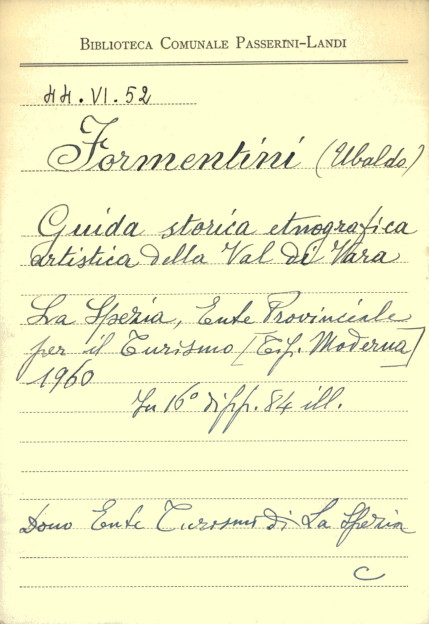 BIBLIOTECA COMUNALE PASSERINI-LANDI
44.VI.52
Formentini (Ubaldo)
Guida storica etnografica
artistica della Val di Vara
La Spezia, Ente Provinciale
per il Turismo [Tip. Moderna]
1960
In 16° di pp. 84 ill.
Dono Ente Turismo di La Spezia
C